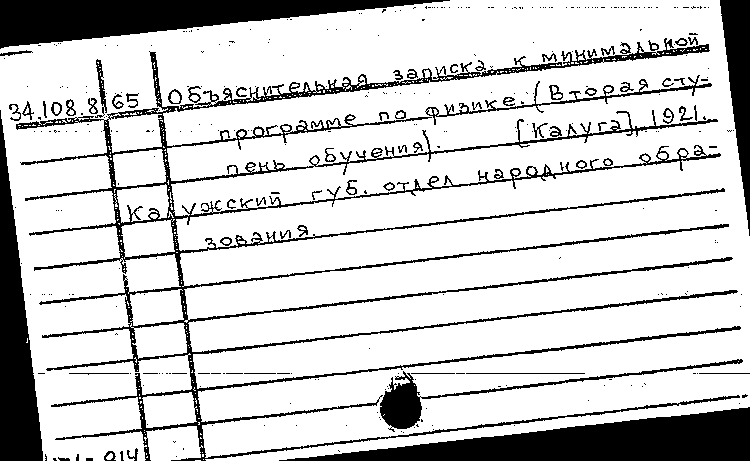 34.108.8 65 Объяснительная записка к минимальной
программе по физике. (Вторая сту-
пень обучения). [Калуга], 1921.
Калужский губ. отдел народного обра-
зования.